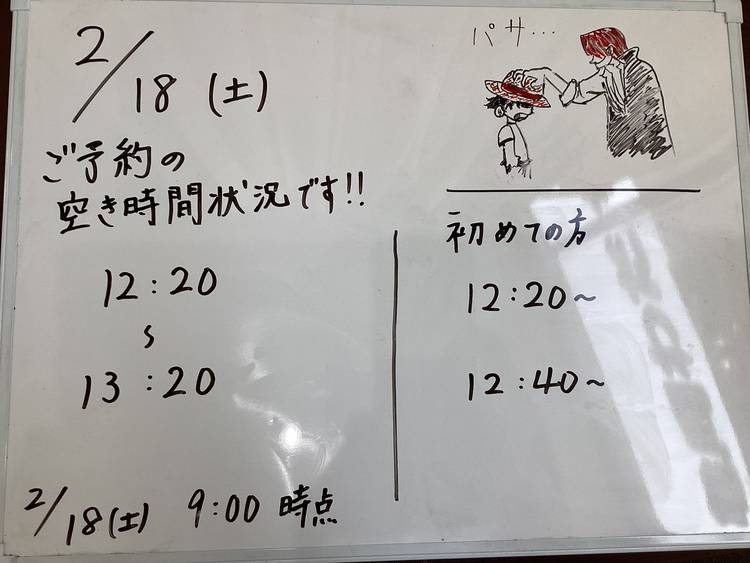 2/18 (土)
ご予約の
空き時間状況です!!
12:20
～
13:20
2/18(土) 9:00 時点
パサ…
初めての方
12:20～
12:40～